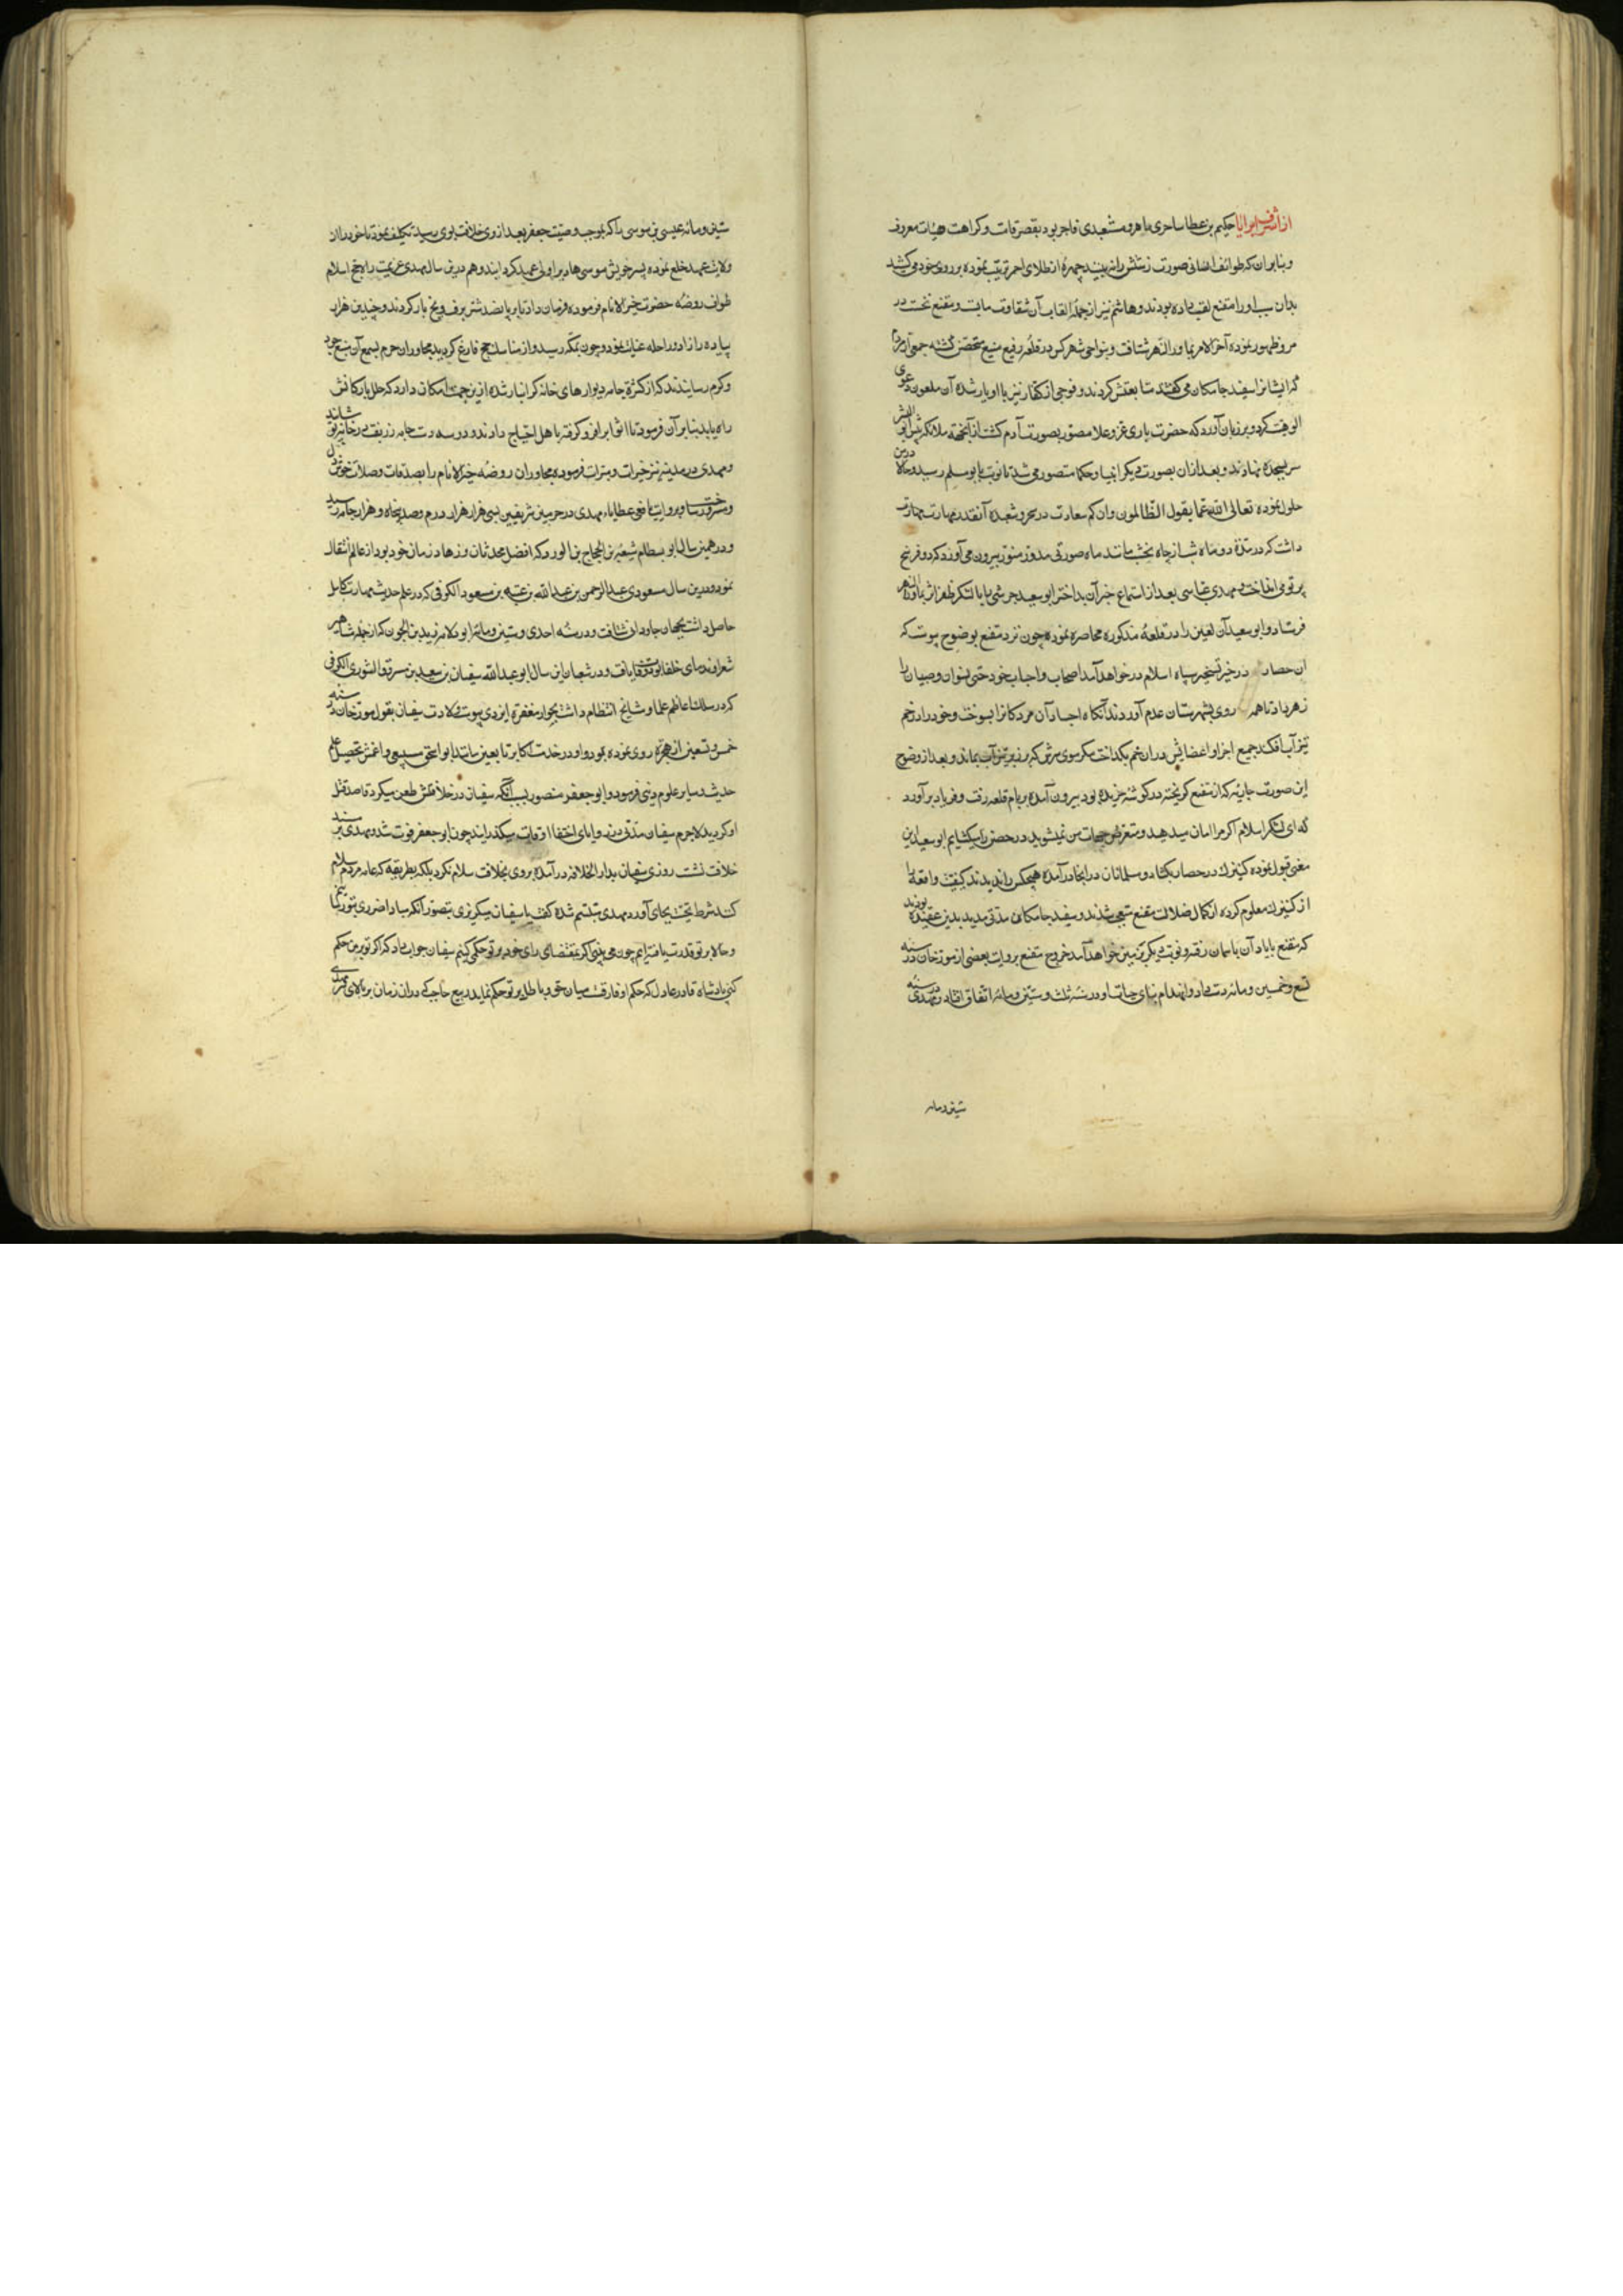 حکیم بن عطا ساحری ماهر و مشعبدی فاجر بود بقصر قامت و کراهت هیئات معروف
و بنابران که طوائف انسانی صورت زشتش را نه بینند چهرهٔ از طلای احمر ترتیب نموده بر روی خود می کشید
بدان سبب او را مقنع لقب داده بودند و هاشم نیز از جملهٔ القاب آن شقاوت مآبست و مقنع نخست در
مرو ظهور نموده آخر الامر بماوراء النهر شتافت و بنواحی شهر کس در قلعهٔ رفیع منیع متحصن گشته جمعی از مردم
که ایشانرا سفید جامکان می گفتند متابعتش کردند و فوجی از کفار نیز با او یار شده آن ملعون دعوی
الوهیت کرد و بر زبان آورد که حضرت باری عز و علا مصور بصورت آدم کشت از آنجهته ملائکه پیش او
سر بسجده نهادند و بعد ازان بصورت دیگر انبیا و حکما متصور می شد تا نوبت بابو مسلم رسید و حالا درمن
حلول نموده تعالی الله عما یقول الظالمون و ان کم سعادت در سحر و شعبده آنقدر مهارت
داشت که در مدة دو ماه شب از چاه نخشب مانند ماه صورتی مدور منور بیرون می آورد که دو فرسخ
پرتو می انداخت و مهدی عباسی بعد از استماع خبر آن بداختر ابو سعید جرشی را با لشکر ظفر اثر بماوراء النهر
فرستاد و ابو سعید آن لعین را در قلعهٔ مذکوره محاصره نموده چون نزد مقنع بوضوح پیوست که
ان حصار در حیز تسخیر سپاه اسلام در خواهد آمد اصحاب و احباب خود حتی نسوان و صبیان را
زهر داد تا همه روی بشهرستان عدم آوردند آنکاه اجساد آن مردکانرا بسوخت و خود را در خم
تیزآب افکند جمیع اجزا و اعضایش دران خم بکداخت مگر موی سرش که بر زبر تیزآب بماند و بعد از وضوح
این صورت جاریه که از مقنع کریخته در کوشه خزیده بود بیرون آمده بر بام قلعه رفت و فریاد برآورد
که ای لشکر اسلام اکر مرا امان میدهید و متعرض جهات من نمیشوید در حصن را میکشایم ابو سعید این
معنی قبول نموده کنیزک در حصار بکشاد و مسلمانان در انجا درآمده هیچکس را ندیدند کیفیت واقعه را
از کنیزک معلوم کرده از کمال ضلالت مقنع متعجب شدند و سفید جامکان مدتی مدید بدین عقیده بودند
که مقنع بآسمان رفته و نوبت دیگر بزمین خواهد آمد خروج مقنع بروایت بعضی از مورخان در سنه
تسع و خمسین و مائه دست داد و انهدام بنای حیات او در سنه ثلث و ستین و مائه اتفاق افتاد در سنه
ستین و مائه
ستین و مائه عیسی بن موسی را که بموجب وصیت جعفر بعد از وی خلافت بوی میرسید تکلیف نمود تا خود را از
ولایت عهد خلع نموده پسر خویش موسی هادی را ولی عهد کردانید و هم درین سال مهدی عزیمت راه حج اسلام
طواف روضهٔ حضرت خیر الانام فرموده فرمان داد تا بر پانصد شتر برف و یخ بار کردند و چندین هزار
پیاده را زاد و راحله عنایت نمود و چون بمکه رسید و از مناسک حج فارغ کردید مجاوران حرم بسمع آن منبع جود
و کرم رسانیدند که از کثرة جامه دیوارهای خانه کرانبار شده ازین جهت امکان دارد که خلل بارکانش
راه یابد بنابر آن فرمود تا اثواب را فرو کرفته باهل احتیاج دادند
و مهدی در مدینه نیز خیرات و مبرات فرموده مجاوران روضهٔ خیر الانام را بصدقات و صلات
و مسرور ساخت و بروایت یافعی عطایاء مهدی در حرمین شریفین بسی هزار هزار درم و صد پنجاه و هزار جامه رسید
و در همین سال ابو بسطام شعبه بن الحجاج بن الورد که افضل محدثان و زهاد زمان خود بود از عالم انتقال
نمود و درین سال مسعودی عبد الرحمن بن عبد الله بن عتبه بن مسعود الکوفی که در علم حدیث مهارت کامل
حاصل داشت بجهان جاودان شتافت و در سنه احدی و ستین و مائه ابو دلامه زید بن الجون که از جمله مشاهیر
شعرا و ندمای خلفا بود وفات یافت و در شعبان این سال ابو عبد الله سفیان بن سعید بن مسروق الثوری الکوفی
که در سلک اعاظم علما و مشایخ انتظام داشت بجوار مغفرة ایزدی پیوست ولادت سفیان بقول مورخان در سنه
خمس و تسعین از هجرة روی نموده بود و او در خدمت اکابر تابعین مانند ابو اسحق سبیعی و اعمش تحصیل علم
حدیث و سایر علوم دینی فرمود و ابو جعفر منصور بسبب آنکه سفیان در خلافتش طعن میکرد قاصد قتل
او کردید لاجرم سفیان مدتی در زوایای اختفا اوقات میکذرانید چون ابو جعفر فوت شد و مهدی بر مسند
خلافت نشست روزی سفیان بدار الخلافه درآمده بروی بخلافت سلام نکرد بلکه بطریقهٔ که عامه مردم سلام
کنند شرط تحیت بجای آورد مهدی متبسم شده کفت یا سفیان میگریزی بتصور آنکه مبادا ضرری بتو رسانیم
و حالا بر تو قدرت یافته ایم چون می بینی اکر بمقتضای رای خود بر تو حکمی کنیم سفیان جواب داد که اکر تو بر من حکم
کنی پادشاه قادر عادل که حکم او فارقست میان حق و باطل بر تو حکم نماید ربیع حاجب که دران زمان بر بالای سر مهدی